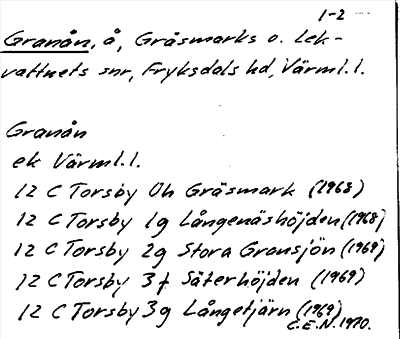 1-2
Granån, å, Gräsmarks o. Lek-
vattnets snr, Fryksdals hd, Värml.l.
Granån
ek Värml.l.
12 C Torsby 0h Gräsmark (1968)
12 C Torsby 1g Långenäshöjden (1968)
12 C Torsby 2g Stora Gransjön (1969)
12 C Torsby 3f Säterhöjden (1969)
12 C Torsby 3g Långetjärn (1969)
C.E.N. 1970.